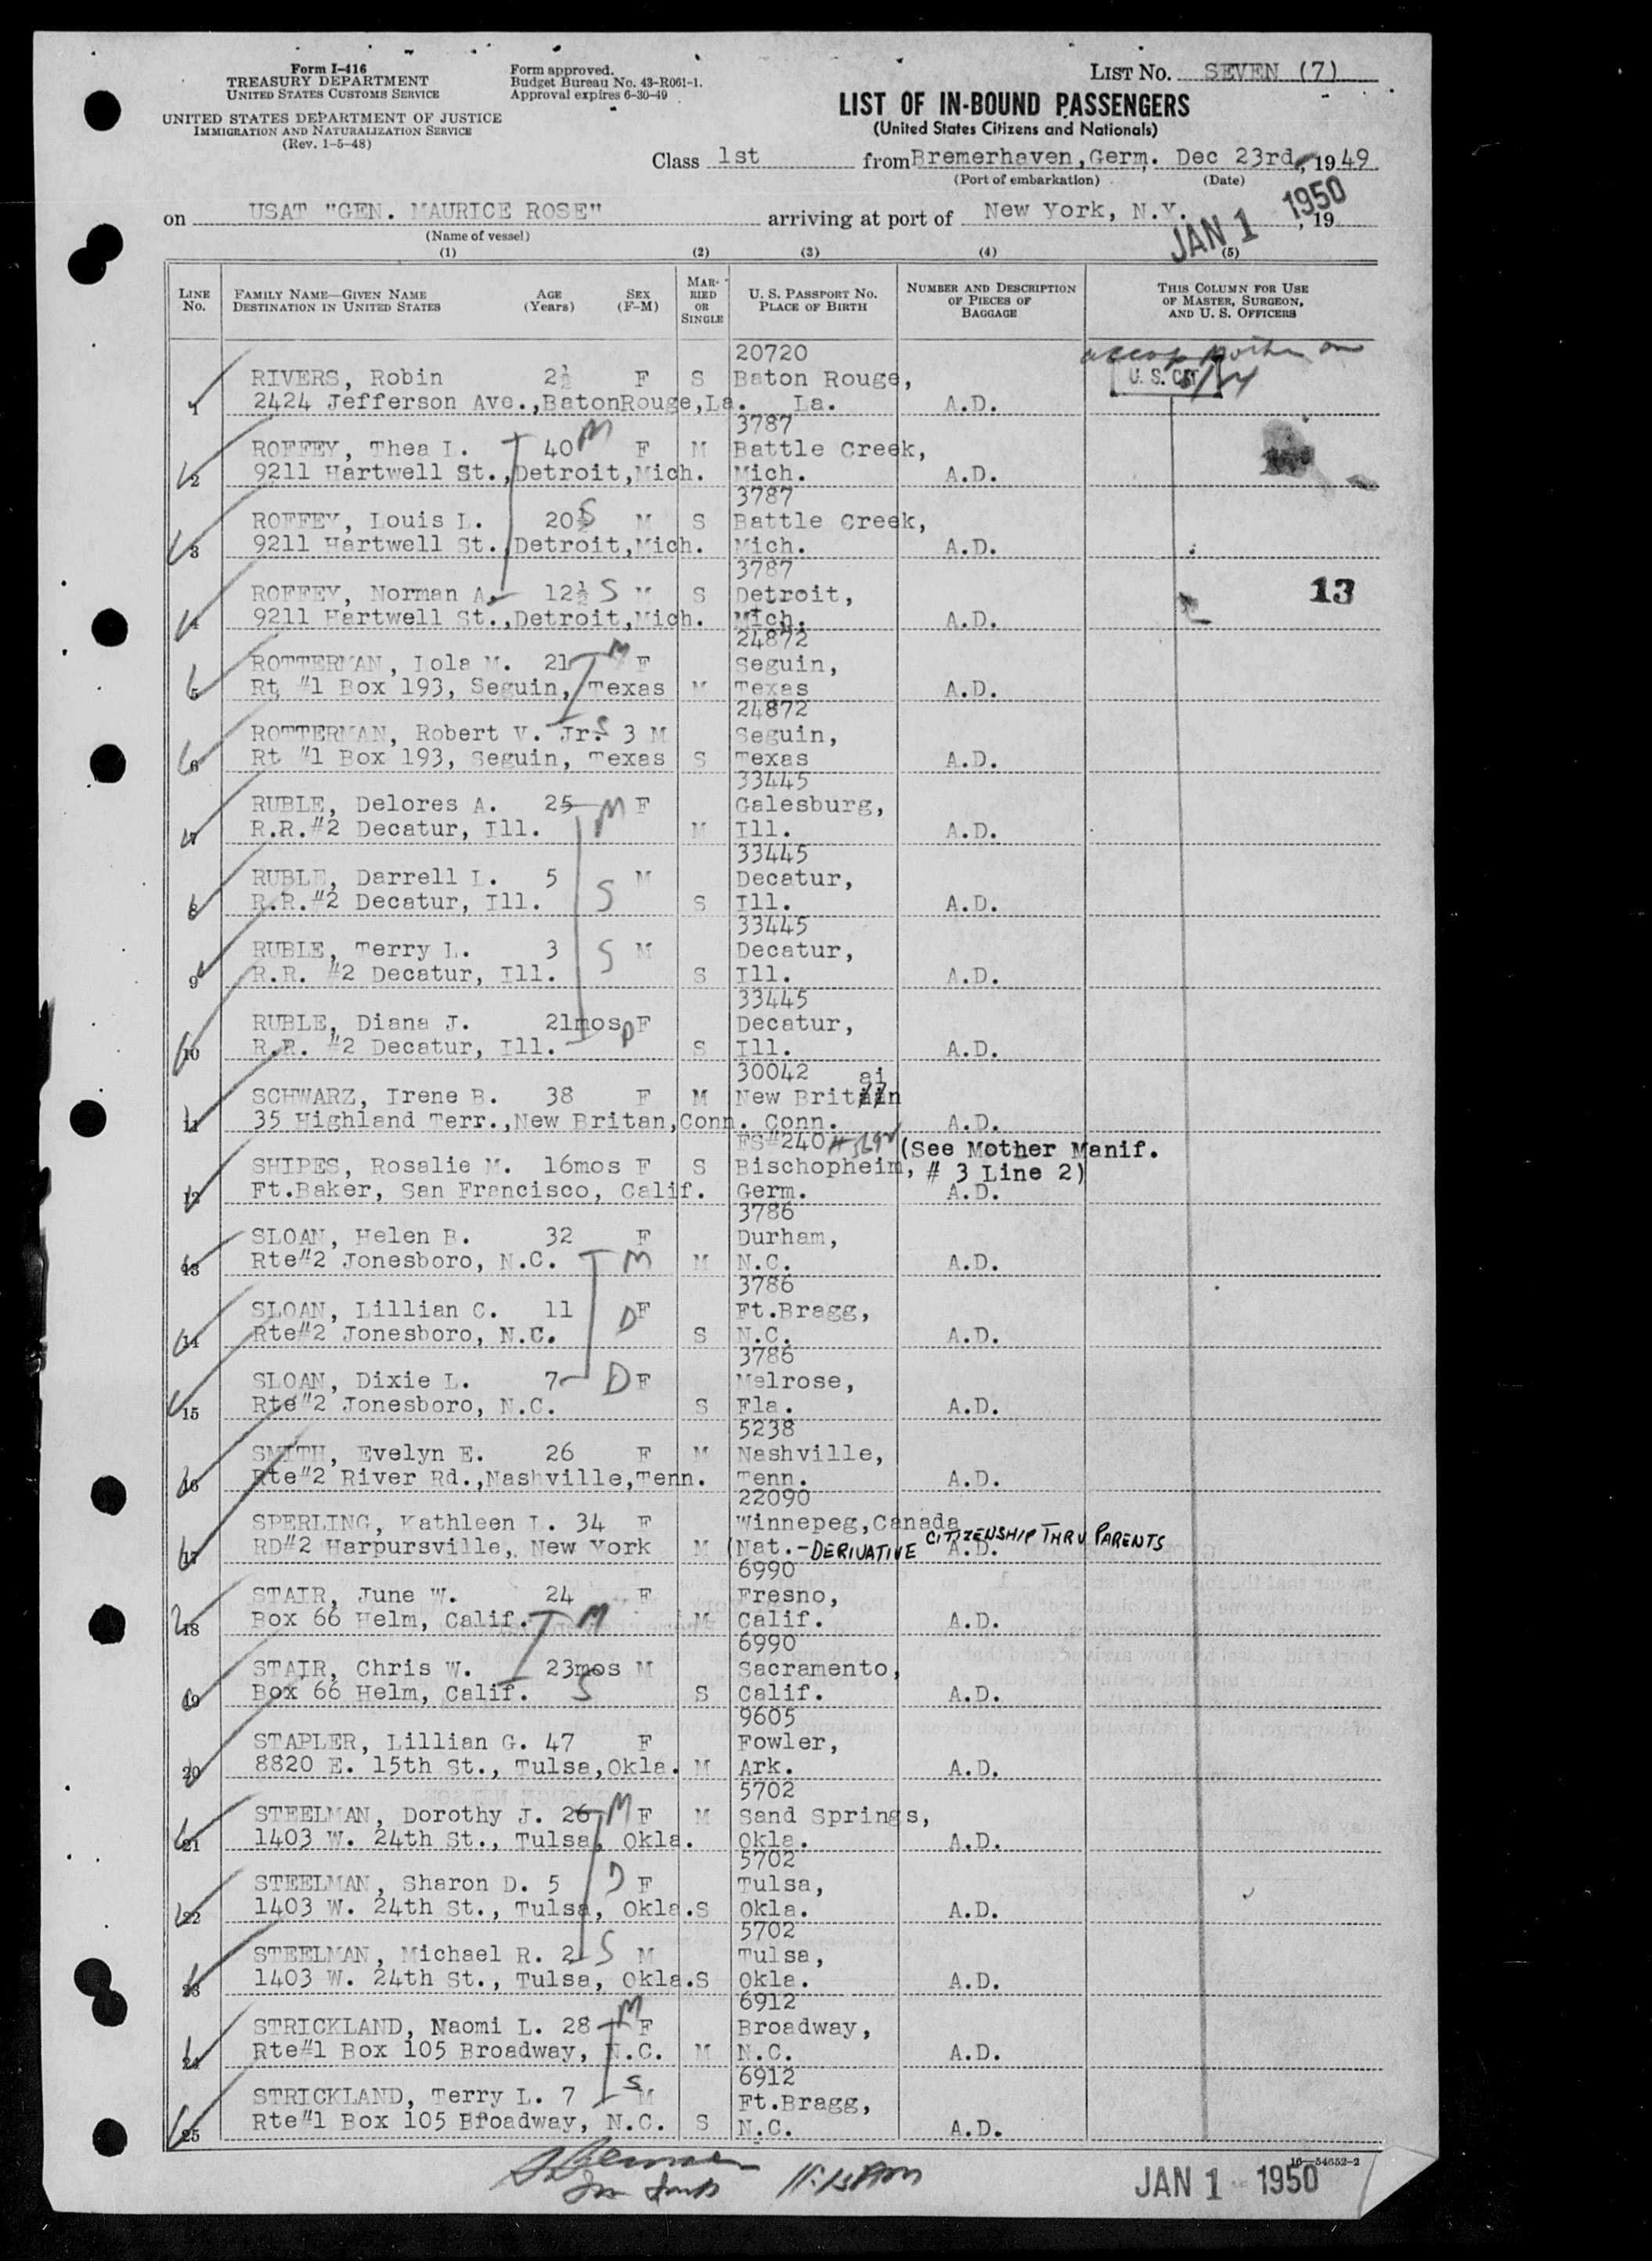 Form I-416
TREASURY DEPARTMENT
UNITED STATES CUSTOMS SERVICE
UNITED STATES DEPARTMENT OF JUSTICE
IMMIGRATION AND NATURALIZATION SERVICE
(Rev. 1-5-48)
Form approved.
Budget Bureau No. 43-R061-1.
Approval expires 6-30-49
LIST No. SEVEN (7)
LIST OF IN-BOUND PASSENGERS
(United States Citizens and Nationals)
Class 1st from Bremerhaven, Germ. Dec 23rd, 1949
(Port of embarkation) (Date)
on USAT "GEN. MAURICE ROSE" arriving at port of New York, N.Y. , 19
JAN 1 1950
(Name of vessel)
(1) (2) (3) (4) (5)
LINE No.
FAMILY NAME—GIVEN NAME
DESTINATION IN UNITED STATES
AGE (Years)
SEX (F-M)
MARRIED OR SINGLE
U. S. PASSPORT NO.
PLACE OF BIRTH
NUMBER AND DESCRIPTION OF PIECES OF BAGGAGE
THIS COLUMN FOR USE OF MASTER, SURGEON, AND U. S. OFFICERS
20720
1 RIVERS, Robin 2½ F S Baton Rouge, U.S. CIT
2424 Jefferson Ave.,BatonRouge,La. La. A.D.
3787
2 ROFFEY, Thea L. 40 M F M Battle Creek,
9211 Hartwell St.,Detroit,Mich. Mich. A.D.
3787
3 ROFFEY, Louis L. 20½ S M S Battle Creek,
9211 Hartwell St.,Detroit,Mich. Mich. A.D.
3787
4 ROFFEY, Norman A. 12½ S M S Detroit, 13
9211 Hartwell St.,Detroit,Mich. Mich. A.D.
24872
5 ROTTERMAN, Lola M. 21 M F Seguin,
Rt #1 Box 193, Seguin, Texas M Texas A.D.
24872
6 ROTTERMAN, Robert V. Jr. S 3 M Seguin,
Rt #1 Box 193, Seguin, Texas S Texas A.D.
33445
7 RUBLE, Delores A. 25 M F Galesburg,
R.R.#2 Decatur, Ill. M Ill. A.D.
33445
8 RUBLE, Darrell L. 5 S M Decatur,
R.R.#2 Decatur, Ill. S Ill. A.D.
33445
9 RUBLE, Terry L. 3 S M Decatur,
R.R. #2 Decatur, Ill. S Ill. A.D.
33445
10 RUBLE, Diana J. 21mos D F Decatur,
R.R. #2 Decatur, Ill. S Ill. A.D.
30042 ai
11 SCHWARZ, Irene B. 38 F M New Britain
35 Highland Terr.,New Britan,Conn. Conn. A.D.
FS#240 (See Mother Manif.
12 SHIPES, Rosalie M. 16mos F S Bischopheim, # 3 Line 2)
Ft.Baker, San Francisco, Calif. Germ. A.D.
3786
13 SLOAN, Helen B. 32 F Durham,
Rte#2 Jonesboro, N.C. M M N.C. A.D.
3786
14 SLOAN, Lillian C. 11 D F Ft.Bragg,
Rte#2 Jonesboro, N.C. S N.C. A.D.
3786
15 SLOAN, Dixie L. 7 D F Melrose,
Rte#2 Jonesboro, N.C. S Fla. A.D.
5238
16 SMITH, Evelyn E. 26 F M Nashville,
Rte#2 River Rd.,Nashville,Tenn. Tenn. A.D.
22090
17 SPERLING, Kathleen L. 34 F Winnepeg,Canada
RD#2 Harpursville, New York M (Nat.- DERIVATIVE CITIZENSHIP THRU PARENTS A.D.
6990
18 STAIR, June W. 24 F Fresno,
Box 66 Helm, Calif. M M Calif. A.D.
6990
19 STAIR, Chris W. 23mos M Sacramento,
Box 66 Helm, Calif. S S Calif. A.D.
9605
20 STAPLER, Lillian G. 47 F Fowler,
8820 E. 15th St., Tulsa,Okla. M Ark. A.D.
5702
21 STEELMAN, Dorothy J. 26 M F M Sand Springs,
1403 W. 24th St., Tulsa, Okla. Okla. A.D.
5702
22 STEELMAN, Sharon D. 5 D F Tulsa,
1403 W. 24th St., Tulsa, Okla.S Okla. A.D.
5702
23 STEELMAN, Michael R. 2 S M Tulsa,
1403 W. 24th St., Tulsa, Okla.S Okla. A.D.
6912
24 STRICKLAND, Naomi L. 28 M F Broadway,
Rte#1 Box 105 Broadway, N.C. M N.C. A.D.
6912
25 STRICKLAND, Terry L. 7 S M Ft.Bragg,
Rte#1 Box 105 Broadway, N.C. S N.C. A.D.
16—54652-2
11:15 AM
JAN 1 1950